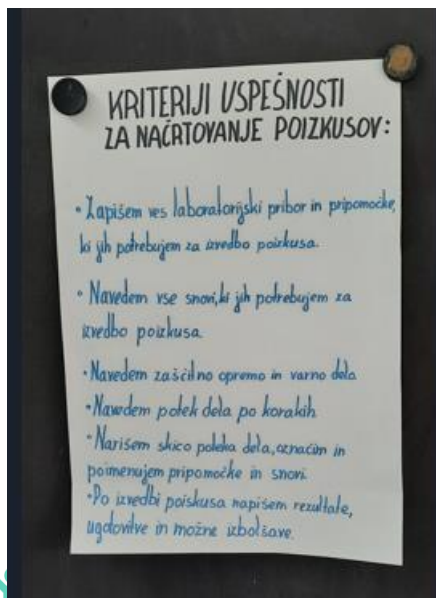 KRITERIJI USPEŠNOSTI
ZA NAČRTOVANJE POIZKUSOV:
• Zapišem ves laboratorijski pribor in pripomočke,
ki jih potrebujem za izvedbo poizkusa.
• Navedem vse snovi, ki jih potrebujem za
izvedbo poizkusa.
• Navedem zaščitno opremo in varno delo
• Navedem potek dela po korakih
• Narišem skico poteka dela, označim in
poimenujem pripomočke in snovi.
• Po izvedbi poiskusa napišem rezultate,
ugotovitve in možne izbolšave.